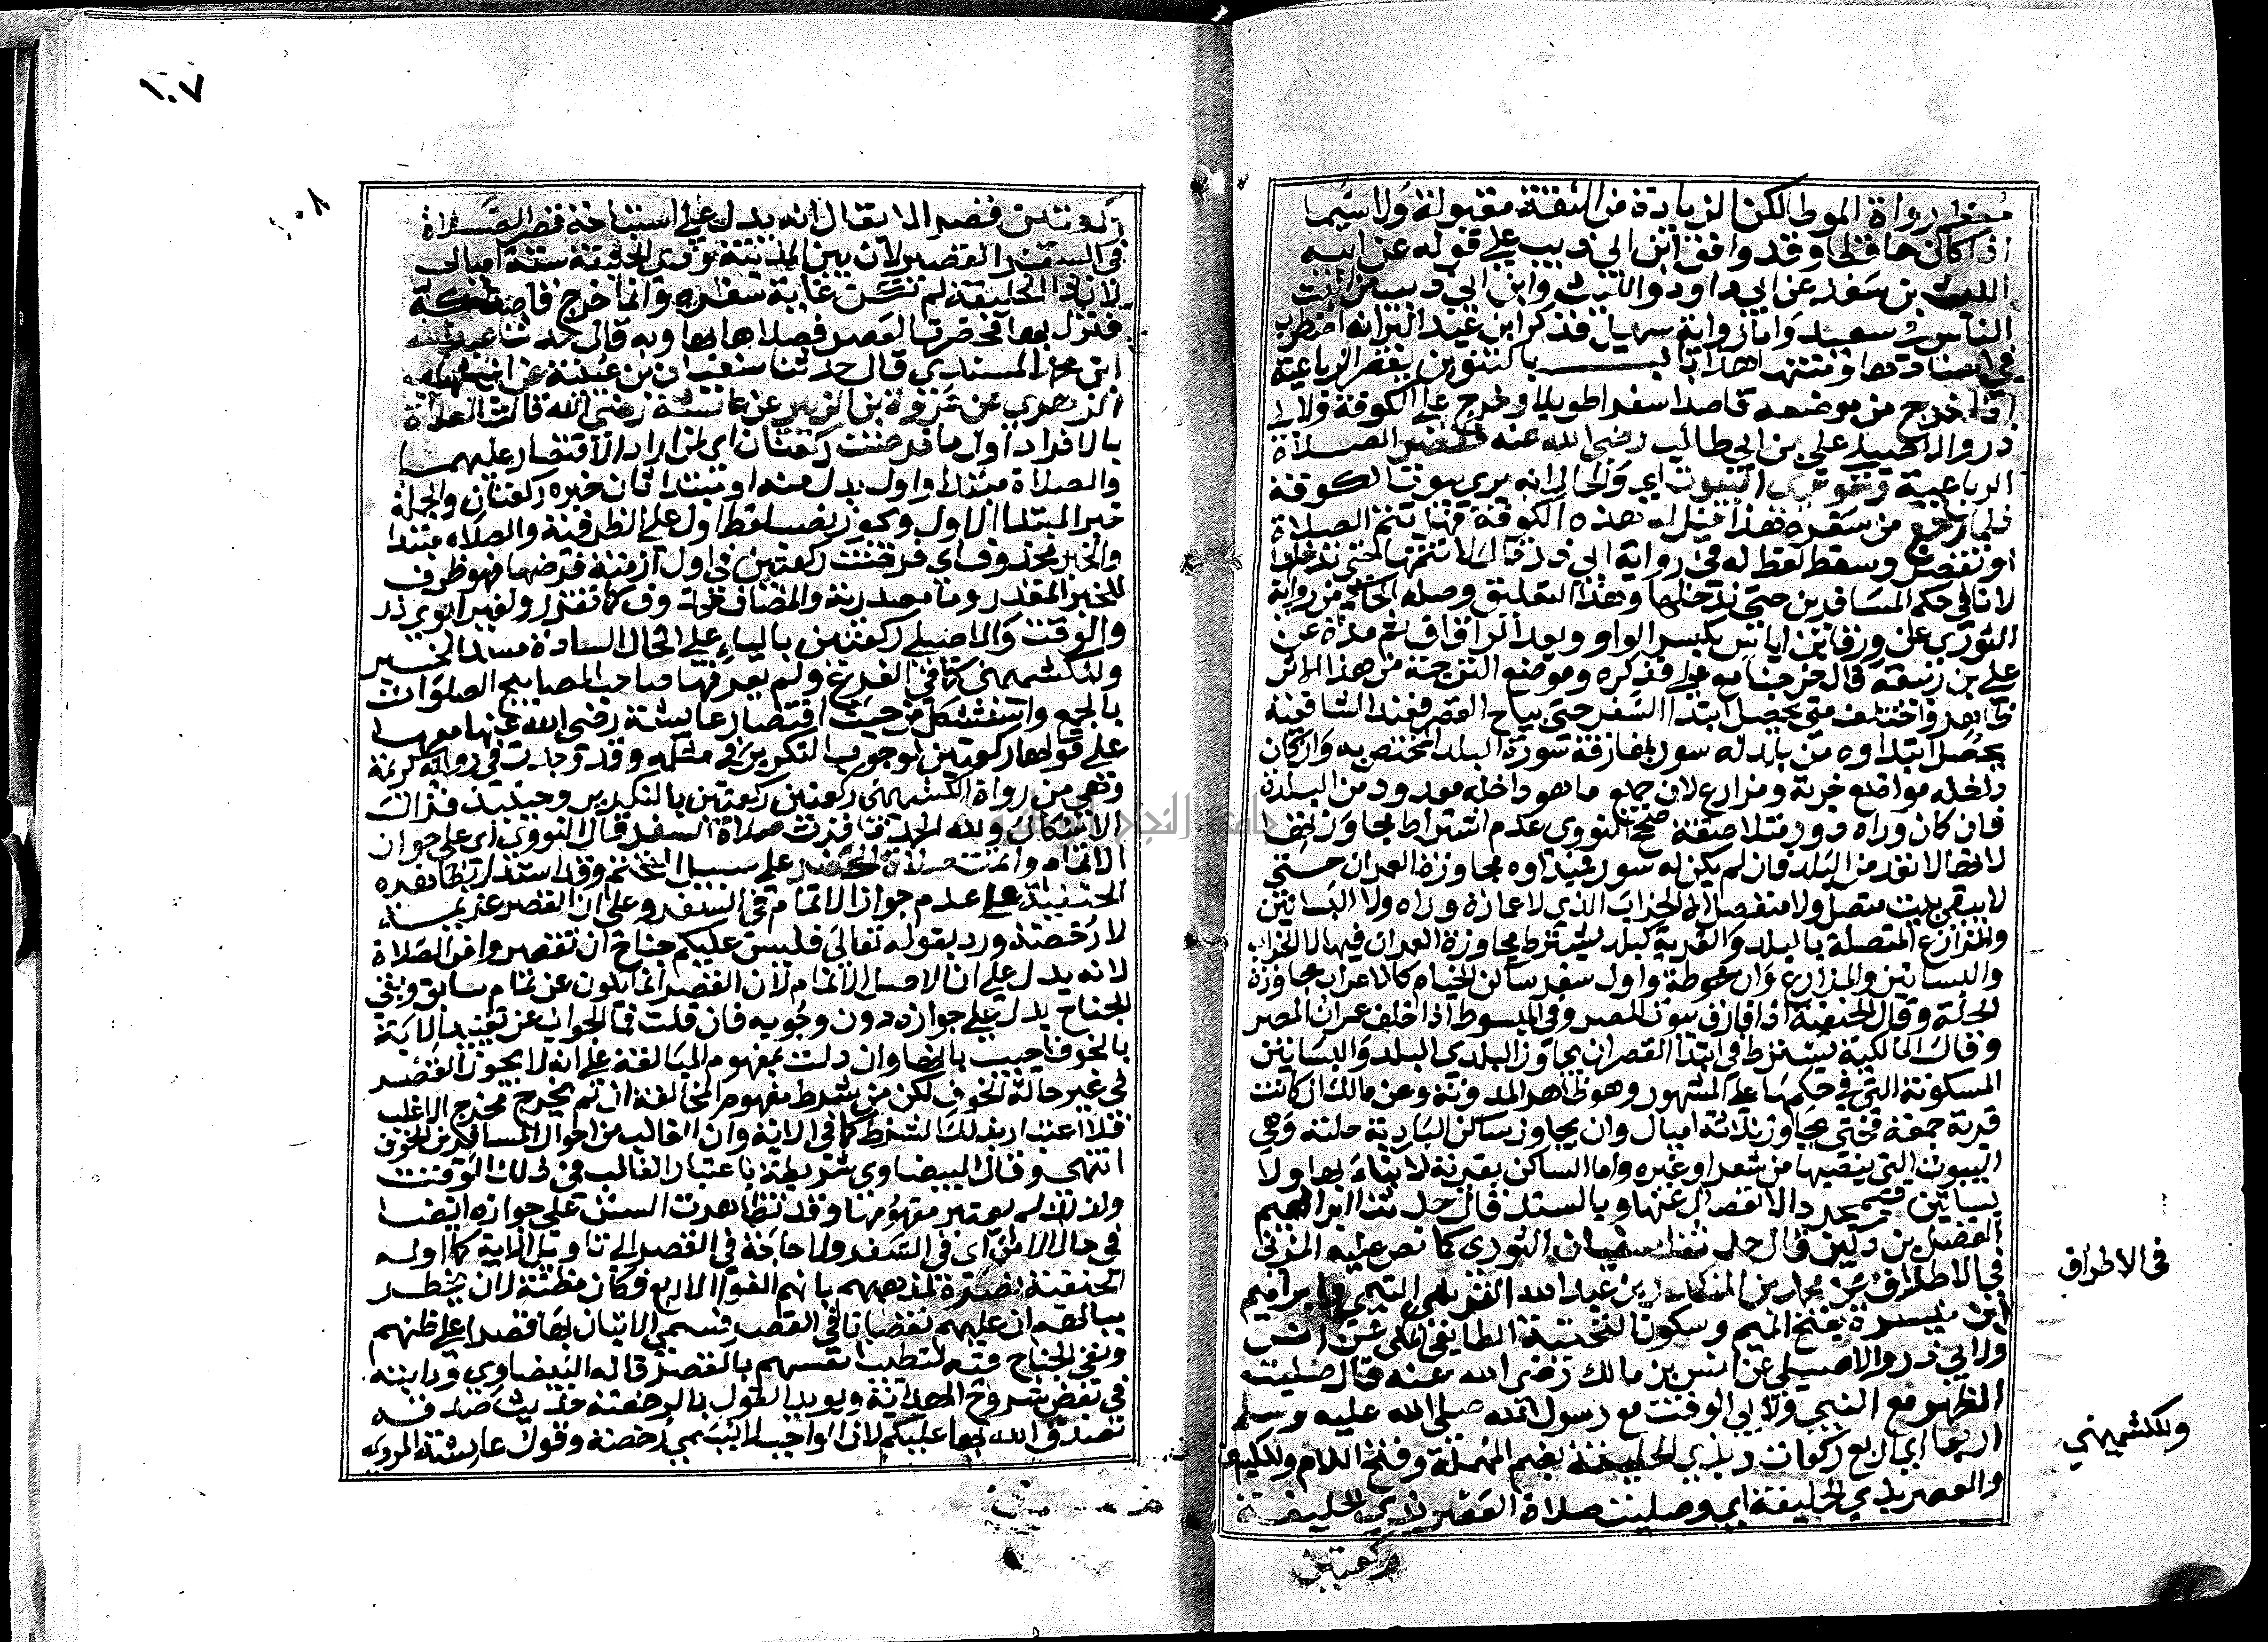 رواة الموطا لكن الزيادة من الثقة مقبولة ولا سيما
اذا كان حافظا وقد وافق ابن ابي ذيب على قوله عن ابيه
الليث بن سعد عن ابي داود والليث وابن ابي ذيب من اثبت
الناس في سعيد واما رواية سهيل فذكر ابن عبد البر انه اضطرب
في اسنادها ومتنها هذا باب بالتنوين يقصر الرباعية
اذا خرج من موضعه قاصدا سفرا طويلا وخرج على الكوفة ولابي
ذر والاصيلي علي بن ابي طالب رضي الله عنه فقصر الصلاة
الرباعية وهو يرى البيوت اي والحال انه يرى بيوت الكوفة
فلما رجع من سفره هذا قيل له هذه الكوفة فهل يتم الصلاة
او تقصر وسقط لفظ له في رواية ابي ذر قال لا نتمها حتى ندخلها
لانا في حكم المسافرين حتى ندخلها وهذا التعليق وصله الحاكم من رواية
الثوري عن ورقا بن اياس بكسر الواو وبعد الراء قاف ثم مدة عن
علي بن ربيعة قال خرجنا مع علي فذكره وموضع الترجمة من هذا الاثر
ظاهر واختلف متى يحصل ابتدا السفر حتى يباح القصر فعند الشافعية
يحصل ابتداوه من بلد له سور بمفارقة سور البلد المختص به وان كان
داخله مواضع خربة ومزارع لان جميع ما هو داخله معدود من البلدة
فان كان وراه دور متلاصقة صحح النووي عدم اشتراط مجاوزتها
لانها لا تعد من البلد فان لم يكن له سور فمبتداوه مجاوزة العمران حتى
لا يبقى بيت متصل ولا منفصل لا الخراب الذي لا عمارة وراه ولا البساتين
والمزارع المتصلة بالبلد والقرية كبلد يشترط مجاوزة العمران فيها لا الخراب
والبساتين والمزارع وان حوطة واول سفر ساكن الخيام كالاعراب مجاوزة
الحلة وقال الحنفية اذا فارق بيوت المصر وفي المبسوط اذا خلف عمران المصر
وقال المالكية يشترط في ابتدا القصر ان يجاوز البلدي البلد والبساتين
المسكونة التي في حكمها على المشهور وهو ظاهر المدونة وعن مالك ان كانت
قرية جمعة فحتى يجاوز ثلاثة اميال وان يجاوز ساكن البادية حلته وهي
البيوت التي ينصبها من شعر او غيره واما الساكن بقرية لا بناء بها ولا
بساتين فبمجرد الانفصال عنها وبالسند قال حدثنا ابو نعيم
الفضل بن دكين قال حدثنا سفيان الثوري كما نص عليه المزي
في الاطراف عن محمد بن المنكدر بن عبد الله القرشي التيمي وابراهيم
ابن ميسرة بفتح الميم وسكون التحتية الطايفي المكي عن انس
ولابي ذر والاصيلي عن انس بن مالك رضي الله عنه قال صليت
الظهر مع النبي ولابي الوقت مع رسول الله صلى الله عليه وسلم
اربعا اي اربع ركعات وبذي الحليفة بضم المهملة وفتح اللام
والعصر بذي الحليفة اي وصليت صلاة العصر بذي الحليفة
ركعتين
في الاطراف
وللكشميهني
١٠٧
١٠٨
ركعتين قصرا لا يقال انه يدل على استباحة قصر الصلاة
في السفر القصير لان بين المدينة وذي الحليفة ستة اميال
لان ذا الحليفة لم تكن غاية سفره وانما خرج قاصدا مكة
فنزل بها فحضرت العصر فصلاها بها وبه قال حدثنا عبد الله
ابن محمد المسندي قال حدثنا سفيان بن عيينة عن ابن شهاب
الزهري عن عروة بن الزبير عن عائشة رضي الله قالت الصلاة
بالافراد اول ما فرضت ركعتان اي لمن اراد الاقتصار عليهما
والصلاة مبتدا واول بدل منه او مبتدا ثان خبره ركعتان والجملة
خبر المبتدا الاول ويجوز نصب لفظ اول على الظرفية والصلاة مبتدا
والخبر محذوف اي فرضت ركعتين في اول ازمنة فرضها فهو ظرف
للخبر المقدر وما مصدرية والمضاف محذوف كما تقرر ولغير ابوي ذر
والوقت والاصيلي ركعتين بالياء على الحال السادة مسد الخبر
وللكشميهني كما في الفرع ولم يعرفها صاحب المصابيح الصلوات
بالجمع واستشكل من حيث اقتصار عايشة رضي الله عنها معها
على قولها ركعتين لوجوب التكرير في مثله وقد وجدت في رواية كريمة
وهي من رواة الكشميهني ركعتين ركعتين بالتكرير وحينيذ فزال
الاشكال ولله الحمد فاقرت صلاة السفر قال النووي اي على جواز
الاتمام واتمت صلاة الحضر على سبيل التحتم وقد استدل بظاهره
الحنفية على عدم جواز الاتمام في السفر وعلى ان القصر عزيمة
لا رخصة ورد بقوله تعالى فليس عليكم جناح ان تقصروا من الصلاة
لانه يدل على ان الاصل الاتمام لان القصر انما يكون عن تمام سابق ونفي
الجناح يدل على جوازه دون وجوبه فان قلت فما الجواب عن تقييد الاية
بالخوف اجيب بانها وان دلت بمفهوم المخالفة على انه لا يجوز القصر
في غير حالة الخوف لكن من شرط مفهوم المخالفة ان لم يخرج مخرج الاغلب
فلا اعتبار بذلك الشرط كما في الاية وان الغالب من احوال المسافرين الخوف
انتهى وقال البيضاوي شريطة باعتبار الغالب في ذلك الوقت
ولذلك لم يعتبر مفهومها وقد تظاهرت السنن على جوازه ايضا
في حال الامن اي في السفر ولا حاجة في القصر الى تاويل الاية كما اوله
الحنفية نصرة لمذهبهم بانهم الفوا الاربع فكان مظنة لان يخطر
ببالهم ان عليهم نقصانا في القصر فسمى الاتيان بها قصرا على ظنهم
ونفى الجناح فيه لتطيب نفسهم بالقصر قاله البيضاوي ورايته
في بعض شروح الهداية ويويد القول بالرخصة حديث صدقة
تصدق الله بها عليكم لان الواجب لا يسمى رخصة وقول عايشة المروي